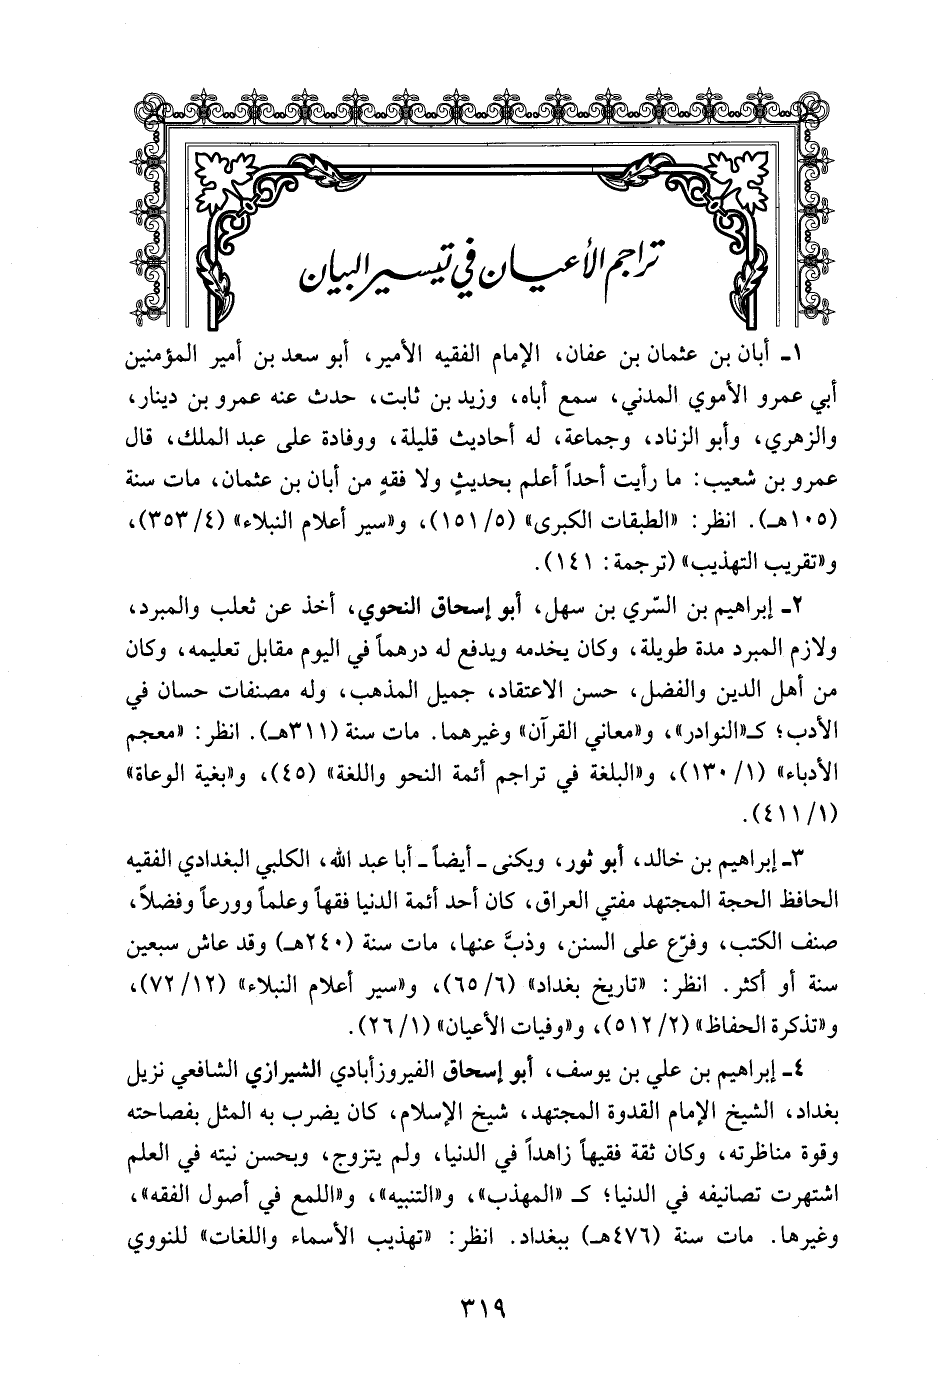 تراجم الأعيان في تيسير البيان
١ـ أبان بن عثمان بن عفان، الإمام الفقيه الأمير، أبو سعد بن أمير المؤمنين
أبي عمرو الأموي المدني، سمع أباه، وزيد بن ثابت، حدث عنه عمرو بن دينار،
والزهري، وأبو الزناد، وجماعة، له أحاديث قليلة، ووفادة على عبد الملك، قال
عمرو بن شعيب: ما رأيت أحداً أعلم بحديثٍ ولا فقهٍ من أبان بن عثمان، مات سنة
(١٠٥هـ). انظر: «الطبقات الكبرى» (٥/ ١٥١)، و«سير أعلام النبلاء» (٤/ ٣٥٣)،
و«تقريب التهذيب» (ترجمة: ١٤١).
٢ـ إبراهيم بن السّري بن سهل، أبو إسحاق النحوي، أخذ عن ثعلب والمبرد،
ولازم المبرد مدة طويلة، وكان يخدمه ويدفع له درهماً في اليوم مقابل تعليمه، وكان
من أهل الدين والفضل، حسن الاعتقاد، جميل المذهب، وله مصنفات حسان في
الأدب؛ كـ«النوادر»، و«معاني القرآن» وغيرهما. مات سنة (٣١١هـ). انظر: «معجم
الأدباء» (١/ ١٣٠)، و«البلغة في تراجم أئمة النحو واللغة» (٤٥)، و«بغية الوعاة»
(١/ ٤١١).
٣ـ إبراهيم بن خالد، أبو ثور، ويكنى ـ أيضاً ـ أبا عبد الله، الكلبي البغدادي الفقيه
الحافظ الحجة المجتهد مفتي العراق، كان أحد أئمة الدنيا فقهاً وعلماً وورعاً وفضلاً،
صنف الكتب، وفرّع على السنن، وذبَّ عنها، مات سنة (٢٤٠هـ) وقد عاش سبعين
سنة أو أكثر. انظر: «تاريخ بغداد» (٦/ ٦٥)، و«سير أعلام النبلاء» (١٢/ ٧٢)،
و«تذكرة الحفاظ» (٢/ ٥١٢)، و«وفيات الأعيان» (١/ ٢٦).
٤ـ إبراهيم بن علي بن يوسف، أبو إسحاق الفيروزأبادي الشيرازي الشافعي نزيل
بغداد، الشيخ الإمام القدوة المجتهد، شيخ الإسلام، كان يضرب به المثل بفصاحته
وقوة مناظرته، وكان ثقة فقيهاً زاهداً في الدنيا، ولم يتزوج، وبحسن نيته في العلم
اشتهرت تصانيفه في الدنيا؛ كـ «المهذب»، و«التنبيه»، و«اللمع في أصول الفقه»،
وغيرها. مات سنة (٤٧٦هـ) ببغداد. انظر: «تهذيب الأسماء واللغات» للنووي
٣١٩